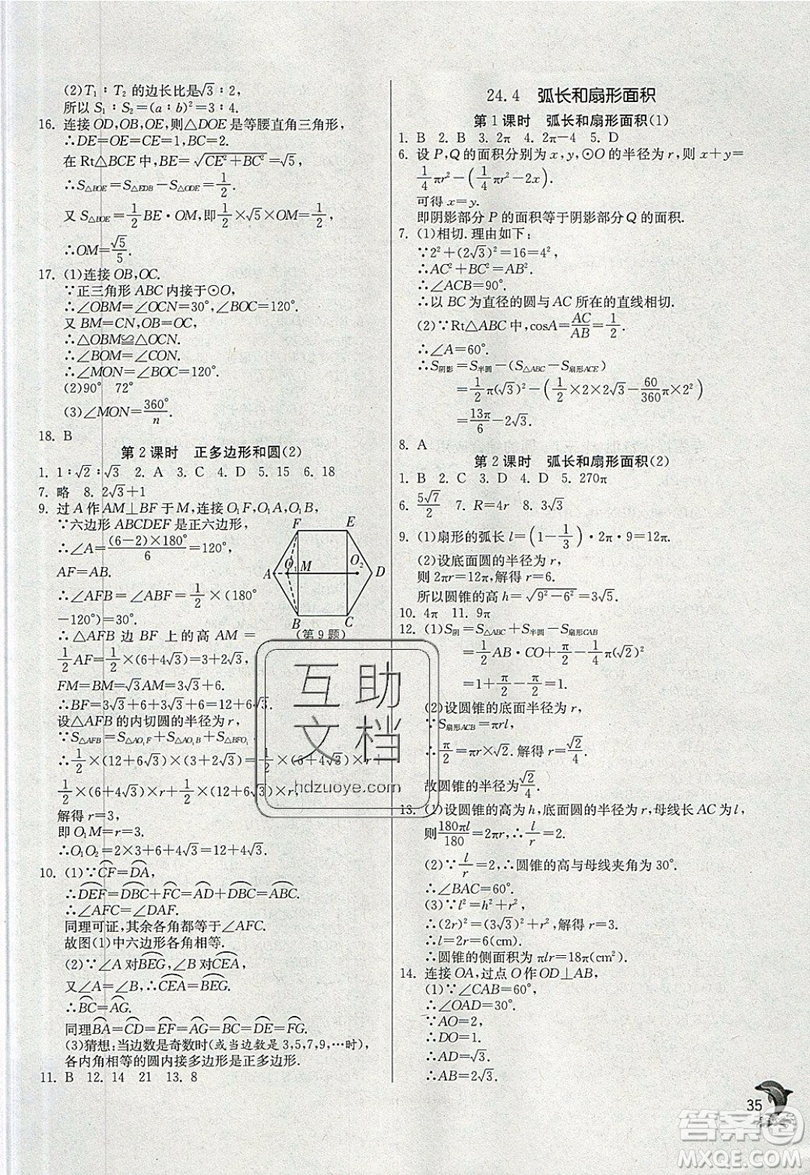 (2)T₁∶T₂ 的边长比是√3∶2,
所以 S₁∶S₂=(a∶b)²=3∶4.
16. 连接 OD,OB,OE,则△DOE 是等腰直角三角形,
∴OD=OE=√2/2 DE=√2/2×√2=1.
在 Rt△BCE 中,BE=√(CE²+BC²)=√5.
∴S△BOE=S△EDB-S△ODE=1/2.
又 S△BOE=1/2 BE·OM,即1/2×√5×OM=1/2,
∴OM=√5/5.
17. (1)连接 OB,OC.
∵正三角形 ABC 内接于⊙O,
∴∠OBM=∠OCN=30°,∠BOC=120°.
又 BM=CN,OB=OC,
∴△OBM≌△OCN.
∴∠BOM=∠CON.
∴∠MON=∠BOC=120°.
(2)90° 72°
(3)∠MON=360°/n.
18. B
第 2 课时 正多边形和圆(2)
1. 1∶√2∶√3 2. A 3. C 4. D 5. 15 6. 18
7. 略 8. 2√3+1
9. 过 A 作 AM⊥BF 于 M,连接 O₁F,O₁A,O₁B,
∵六边形 ABCDEF 是正六边形,
∴∠A=(6-2)×180°/6=120°,
AF=AB.
∴∠AFB=∠ABF=1/2×(180°
-120°)=30°.
∴△AFB 边 BF 上的高 AM=
1/2 AF=1/2×(6+4√3)=3+2√3,
FM=BM=√3AM=3√3+6.
∴BF=3√3+6+3√3+6=12+6√3.
设△AFB 的内切圆的半径为 r,
∵S△AFB=S△AO₁F+S△AO₁B+S△BFO₁
∴1/2×(12+6√3)×(3+2√3)=1/2×(6+4√3)×r+
1/2×(6+4√3)×r+1/2×(12+6√3)×r,
解得 r=3.
即 O₁M=r=3.
∴O₁O₂=2×3+6+4√3=12+4√3.
10. (1)∵⌒CF=⌒DA,
∴⌒DEF=⌒DAF+⌒ABC=⌒DBC+⌒ABC.
∴∠AFC=∠DAF.
同理可证,其余各角都等于∠AFC.
故图(1)中六边形各角相等.
(2)∵∠A对⌒BEG,∠B对⌒CEA,
又∵∠A=∠B,∴⌒CEA=⌒BEG.
∴⌒BC=⌒AG.
同理⌒BA=⌒CD=⌒EF=⌒AG=⌒BC=⌒DE=⌒FG.
(3)猜想:当边数是奇数时(或当边数是 3,5,7,9,⋯,时),
各内角相等的圆内接多边形是正多边形.
11. B 12. 14 21 13. 8
F E
A O₁ M O₂ D
B C
(第 9 题)
24.4 弧长和扇形面积
第 1 课时 弧长和扇形面积(1)
1. B 2. B 3. 2π 4. 2π-4 5. D
6. 设 P,Q 的面积分别为 x,y,⊙O 的半径为 r,则 x-y=
1/4πr²-(1/4πr²-2x).
可得 x=y.
即阴影部分 P 的面积等于阴影部分 Q 的面积.
7. (1)相切. 理由如下:
∵2²+(2√3)²=16=4²,
∴AC²+BC²=AB².
∴∠ACB=90°.
∴以 BC 为直径的圆与 AC 所在的直线相切.
(2)∵Rt△ABC 中,cosA=AC/AB=1/2,
∴∠A=60°.
∴S阴影=S半圆-(S△ABC-S扇形ACE)
=1/2π(√3)²-(1/2×2×2√3-60/360π×2²)
=13π/6-2√3.
8. A
第 2 课时 弧长和扇形面积(2)
1. B 2. C 3. B 4. D 5. 270π
6. 5√7/2 7. R=4r 8. 3√3
9. (1)扇形的弧长 l=(1-1/3)·2π·9=12π.
(2)设底面圆的半径为 r,
则 2πr=12π,解得 r=6.
所以圆锥的高 h=√(9²-6²)=3√5.
10. 4π 11. 9π
12. (1)S阴=S△ABC+S半圆-S扇形CAB
=1/2 AB·CO+1/2π-1/4π(√2)²
=1+π/2-π/2=1.
(2)设圆锥的底面半径为 r,
∵S扇形=πrl,
∴π/2=π·√2·r. 解得 r=√2/4.
故圆锥的半径为√2/4.
13. (1)设圆锥的高为 h,底面圆的半径为 r,母线长 AC 为 l,
则180πl/180=2πr,l/r=2.
(2)∵l/r=2,∴圆锥的高与母线夹角为 30°.
∴∠BAC=60°.
(3)∵l²=h²+r²,
∴(2r)²=(3√3)²+r²,解得 r=3.
∴l=2r=6(cm).
∴圆锥的侧面积为 πlr=18π(cm²).
14. 连接 OA,过点 O 作 OD⊥AB,
(1)∵∠CAB=60°,
∴∠OAD=30°.
∵AO=2,
∴DO=1.
∴AD=√3.
∴AB=2√3.
互助
文档
hdzuoye.com
35
答案圈
MXQE.COM